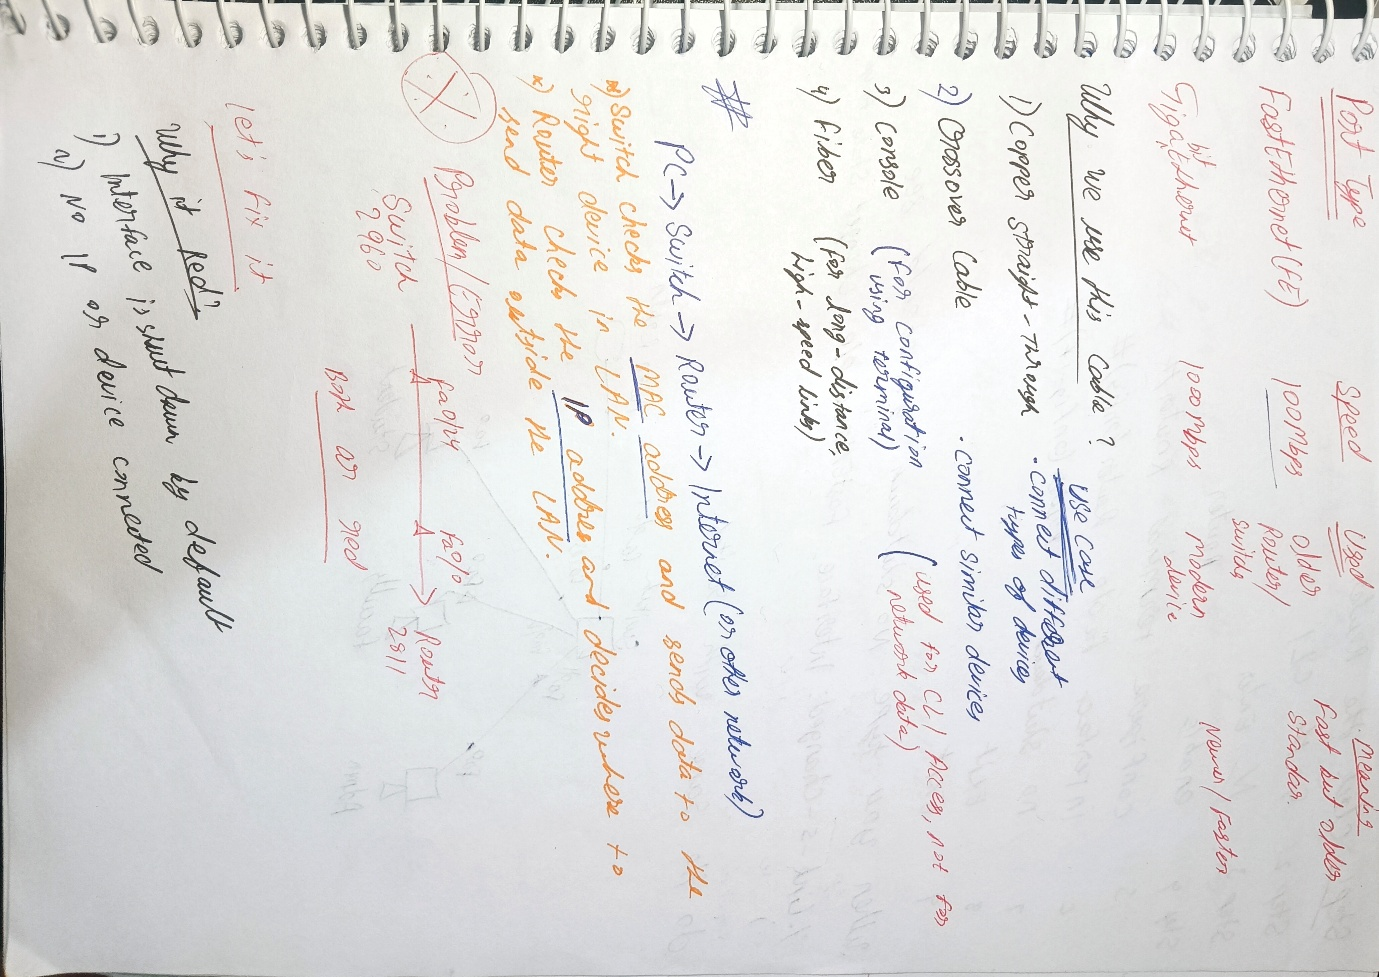 Port Type Speed Used Meaning
FastEthernet (FE) 100Mbps older Router/ Fast but older
switch Standar.
Gigabit Ethernet 1000 Mbps modern Newer/Faster
device
Why we use this cable? use case
1) Copper straight-through . connect different
types of devices
2) Crossover Cable . connect similar devices
3) Console (for configuration (used for CLI Access, not for
using terminal) network data)
4) Fiber (for long-distance,
high-speed links)
#
PC → Switch → Router → Internet (or other network)
*) Switch checks the MAC address and sends data to the
right device in LAN.
*) Router checks the IP address and decides where to
send data outside the LAN.
X Problem/Error
Switch fa0/4 fa0/0 Router
2960 2811
Both are red
Let's fix it
Why it Red?
1) Interface is shut down by default
2) No IP or device connected